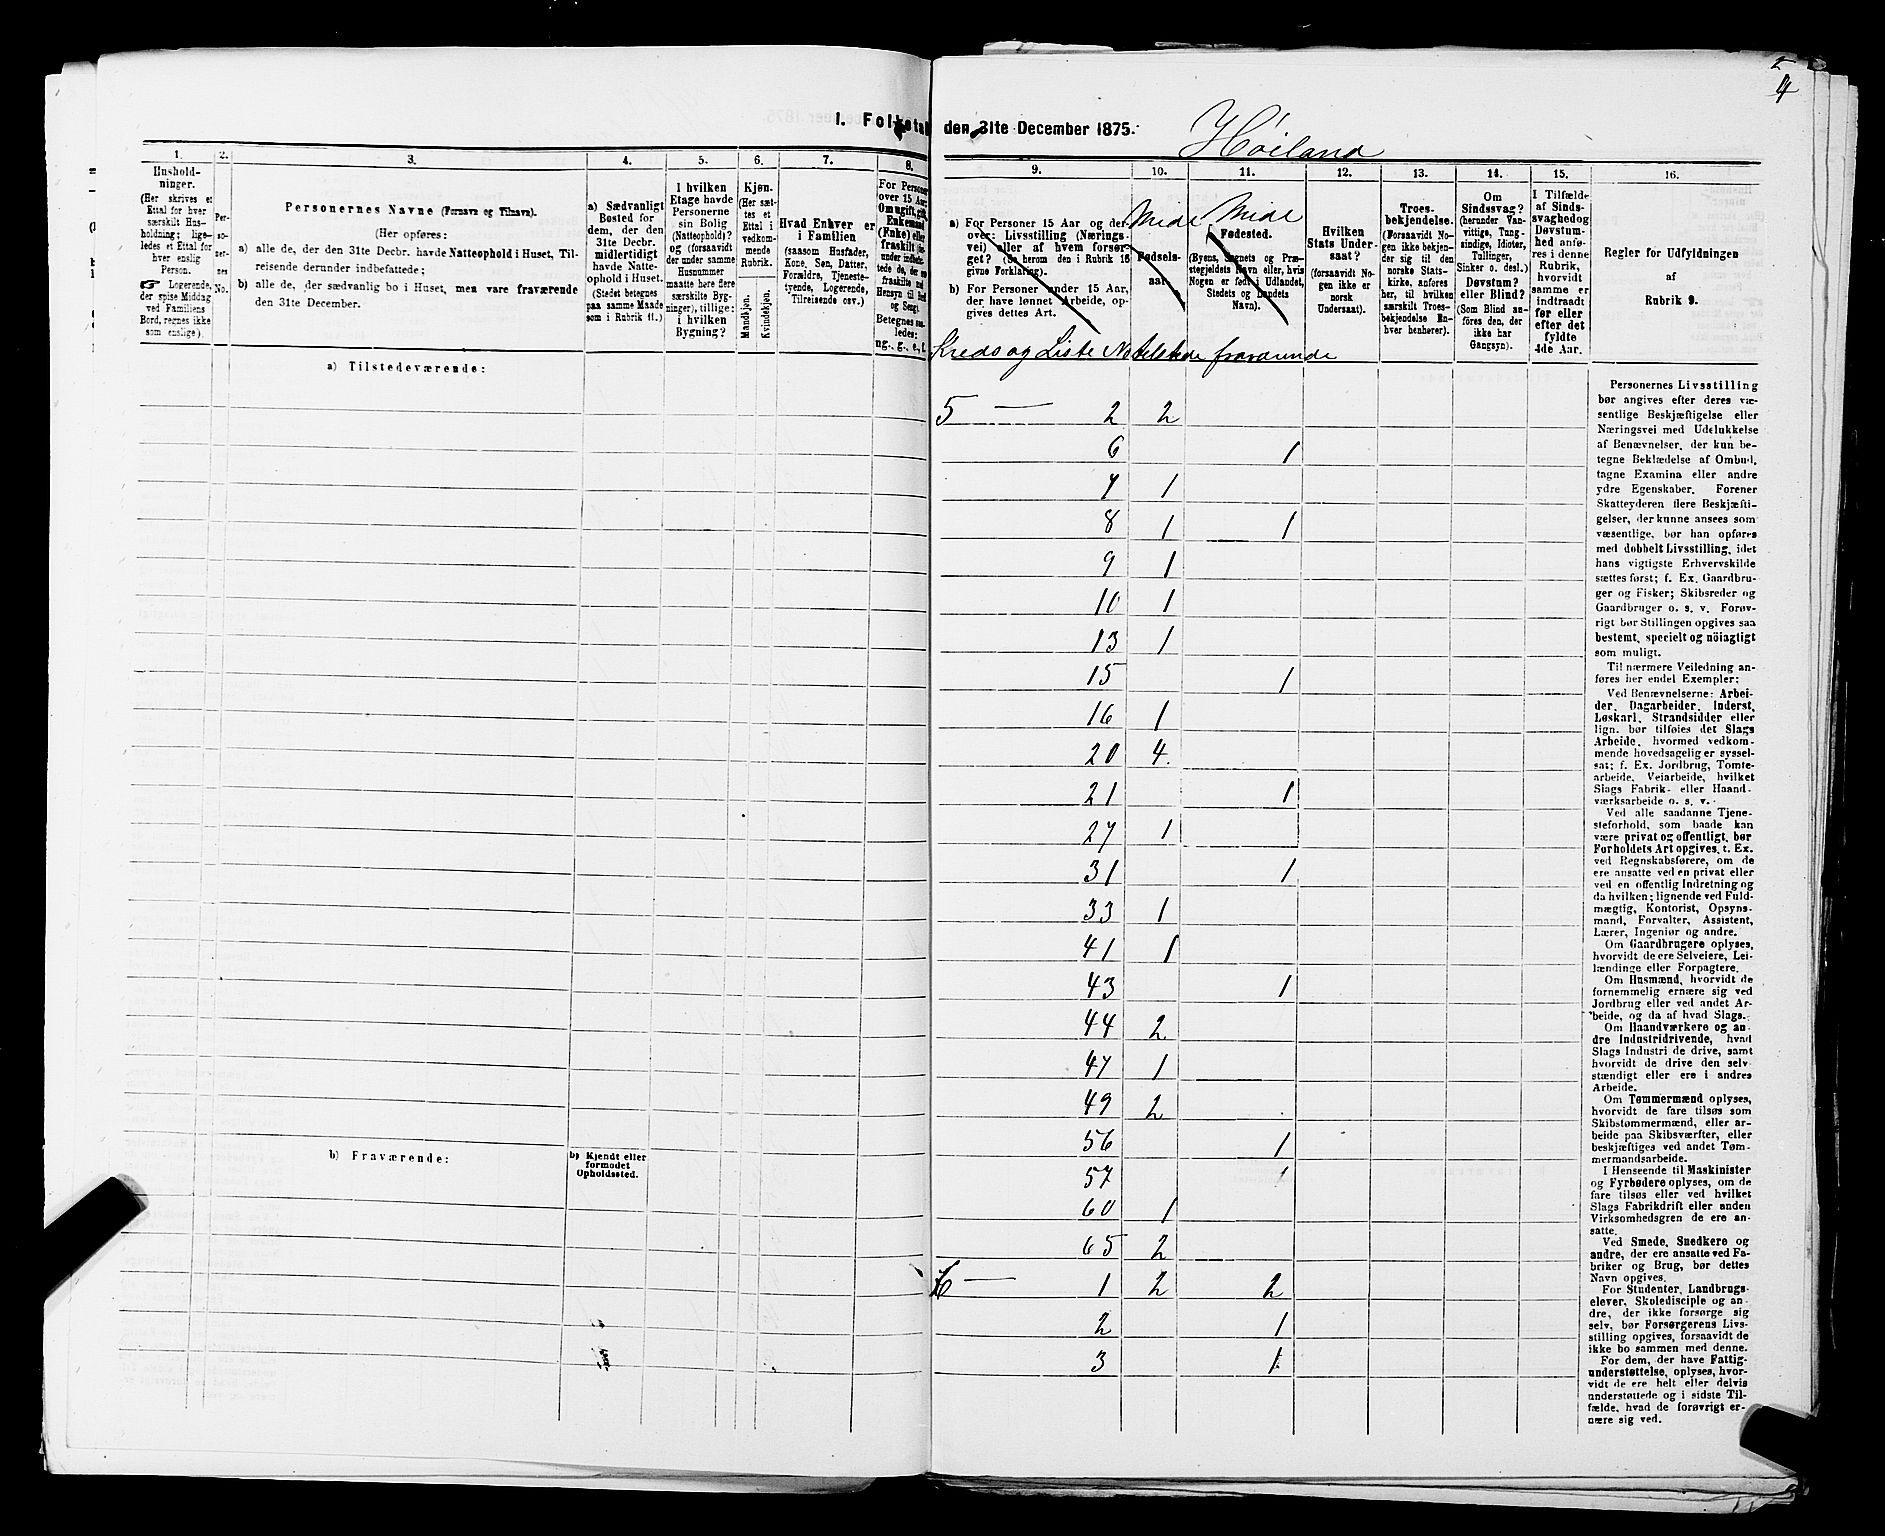 4
1. Folketal den 31te December 1875.
Høiland
1.
Husholdninger.
(Her skrives et
Ettal for hver
særskilt Husholdning; ligeledes et Ettal for
hver enslig
Person.
Logerende,
der spise Middag
ved Familiens
Bord, regnes ikke
som enslige).
2.
Personernes
No.
3.
Personernes Navne (Fornavn og Tilnavn).
(Her opføres:
a) alle de, der den 31te Decbr. havde Natteophold i Huset, Tilreisende derunder indbefattede;
b) alle de, der sædvanlig bo i Huset, men vare fraværende
den 31te December.
4.
a) Sædvanligt
Bosted for
dem, der den
31te Decbr.
midlertidigt
havde Natteophold i Huset.
(Stedet betegnes
paa samme Maade
som i Rubrik 11.)
5.
I hvilken
Etage havde
Personerne
sin Bolig
(Natteophold)?
og (forsaavidt
der under samme
Husnummer
maatte høre flere
særskilte Bygninger), tillige:
i hvilken
Bygning?
6.
Kjøn.
(Her sættes et
Ettal i
vedkommende
Rubrik.
Mandkjøn.
Kvindekjøn.
7.
Hvad Enhver er
i Familien
(saasom Husfader,
Kone, Søn, Datter,
Forældre, Tjenestetyende, Logerende,
Tilreisende osv.)
8.
For Personer
over 15 Aar:
Om ugift, gift,
Enkemand
(Enke) eller
fraskilt
Betegnes saaledes:
ug., g., e., f.
9.
a) For Personer 15 Aar og derover: Livsstilling (Næringsvei) eller af hvem forsørget? (Se herom den i Rubrik 16
givne Forklaring).
b) For Personer under 15 Aar,
der have lønnet Arbeide, opgives dettes Art.
10.
Fødselsaar.
Mide
11.
Mide
Fødested.
(Byens, Sognets og Præstegjeldets Navn eller, hvis
Nogen er født i Udlandet,
Stedets og Landets
Navn).
12.
Hvilken
Stats Undersaat?
(forsaavidt Nogen ikke er
norsk
Undersaat).
13.
Troesbekjendelse.
(Forsaavidt Nogen ikke bekjender sig til den
norske Statskirke, anføres
her, til hvilken
særskilt Troesbekjendelse Enhver henhører).
14.
Om
Sindssvag?
(herunder Vanvittige, Tungsindige, Idioter,
Tullinger,
Sinker o. desl.)
Døvstum?
eller Blind?
(Som Blind anføres den, der
ikke har
Gangsyn).
15.
I Tilfælde
af Sindssvaghed og
Døvstumhed anføres i denne
Rubrik,
hvorvidt
samme er
indtraadt
før eller
efter det
fyldte
4de Aar.
16.
Regler for Udfyldningen
af
Rubrik 9.
Kreds og Liste No tilstede fraværende
a) Tilstedeværende:
5 — 2 2
6 1
7 1
8 1 1
9 1
10 1
13 1
15 1
16 1
20 4
21 1
27 1
31 1
33 1
41 1
43 1
44 2
47 1
49 2
56 1
57 1
60 1
65 2
6 — 1 2 2
2 1
3 1
b) Fraværende:
b) Kjendt eller
formodet
Opholdssted.
Personernes Livsstilling
bør angives efter deres væsentlige Beskjæftigelse eller
Næringsvei med Udelukkelse
af Benævnelser, der kun betegne Beklædelse af Ombud,
tagne Examina eller andre
ydre Egenskaber. Forener
Skatteyderen flere Beskjæftigelser, der kunne ansees som
væsentlige, bør han opføres
med dobbelt Livsstilling, idet
hans vigtigste Erhvervskilde
sættes først; f. Ex. Gaardbruger og Fisker; Skibsreder og
Gaardbruger o. s. v. Forøvrigt bør Stillingen opgives saa
bestemt, specielt og nöiagtigt
som muligt.
Til nærmere Veiledning anføres her endel Exempler:
Ved Benævnelserne: Arbeider, Dagarbeider, Inderst,
Løskarl, Strandsidder eller
lign. bør tilføies det Slags
Arbeide, hvormed vedkommende hovedsagelig er sysselsat; f. Ex. Jordbrug, Tomtearbeide, Veiarbeide, hvilket
Slags Fabrik- eller Haandværksarbeide o. s. v.
Ved alle saadanne Tjenesteforhold, som baade kan
være privat og offentligt, bør
Forholdets Art opgives, t. Ex.
ved Regnskabsførere, om de
ere ansatte ved en privat eller
ved en offentlig Indretning og
da hvilken; lignende ved Fuldmægtig, Kontorist, Opsynsmand, Forvalter, Assistent,
Lærer, Ingeniør og andre.
Om Gaardbrugere oplyses,
hvorvidt de ere Selveiere, Leilændinge eller Forpagtere.
Om Husmænd, hvorvidt de
fornemmelig ernære sig ved
Jordbrug eller ved andet Arbeide, og da af hvad Slags.
Om Haandværkere og andre Industridrivende, hvad
Slags Industri de drive, samt
hvorvidt de drive den selvstændigt eller ere i andres
Arbeide.
Om Tømmermænd oplyses,
hvorvidt de fare tilsøs som
Skibstømmermænd, eller arbeide paa Skibsværfter, eller
beskjæftiges ved andet Tømmermandsarbeide.
I Henseende til Maskinister
og Fyrbødere oplyses, om de
fare tilsøs eller ved hvilket
Slags Fabrikdrift eller anden
Virksomhedsgren de ere ansatte.
Ved Smede, Snedkere og
andre, der ere ansatte ved Fabriker og Brug, bør dettes
Navn opgives.
For Studenter, Landbrugselever, Skoledisciple og andre, der ikke forsørge sig
selv, bør Forsørgerens Livsstilling opgives, forsaavidt de
ikke bo sammen med denne.
For dem, der have Fattigunderstøttelse, oplyses, hvorvidt de ere helt eller delvis
understøttede og i sidste Tilfælde, hvad de forøvrigt ernære sig ved.